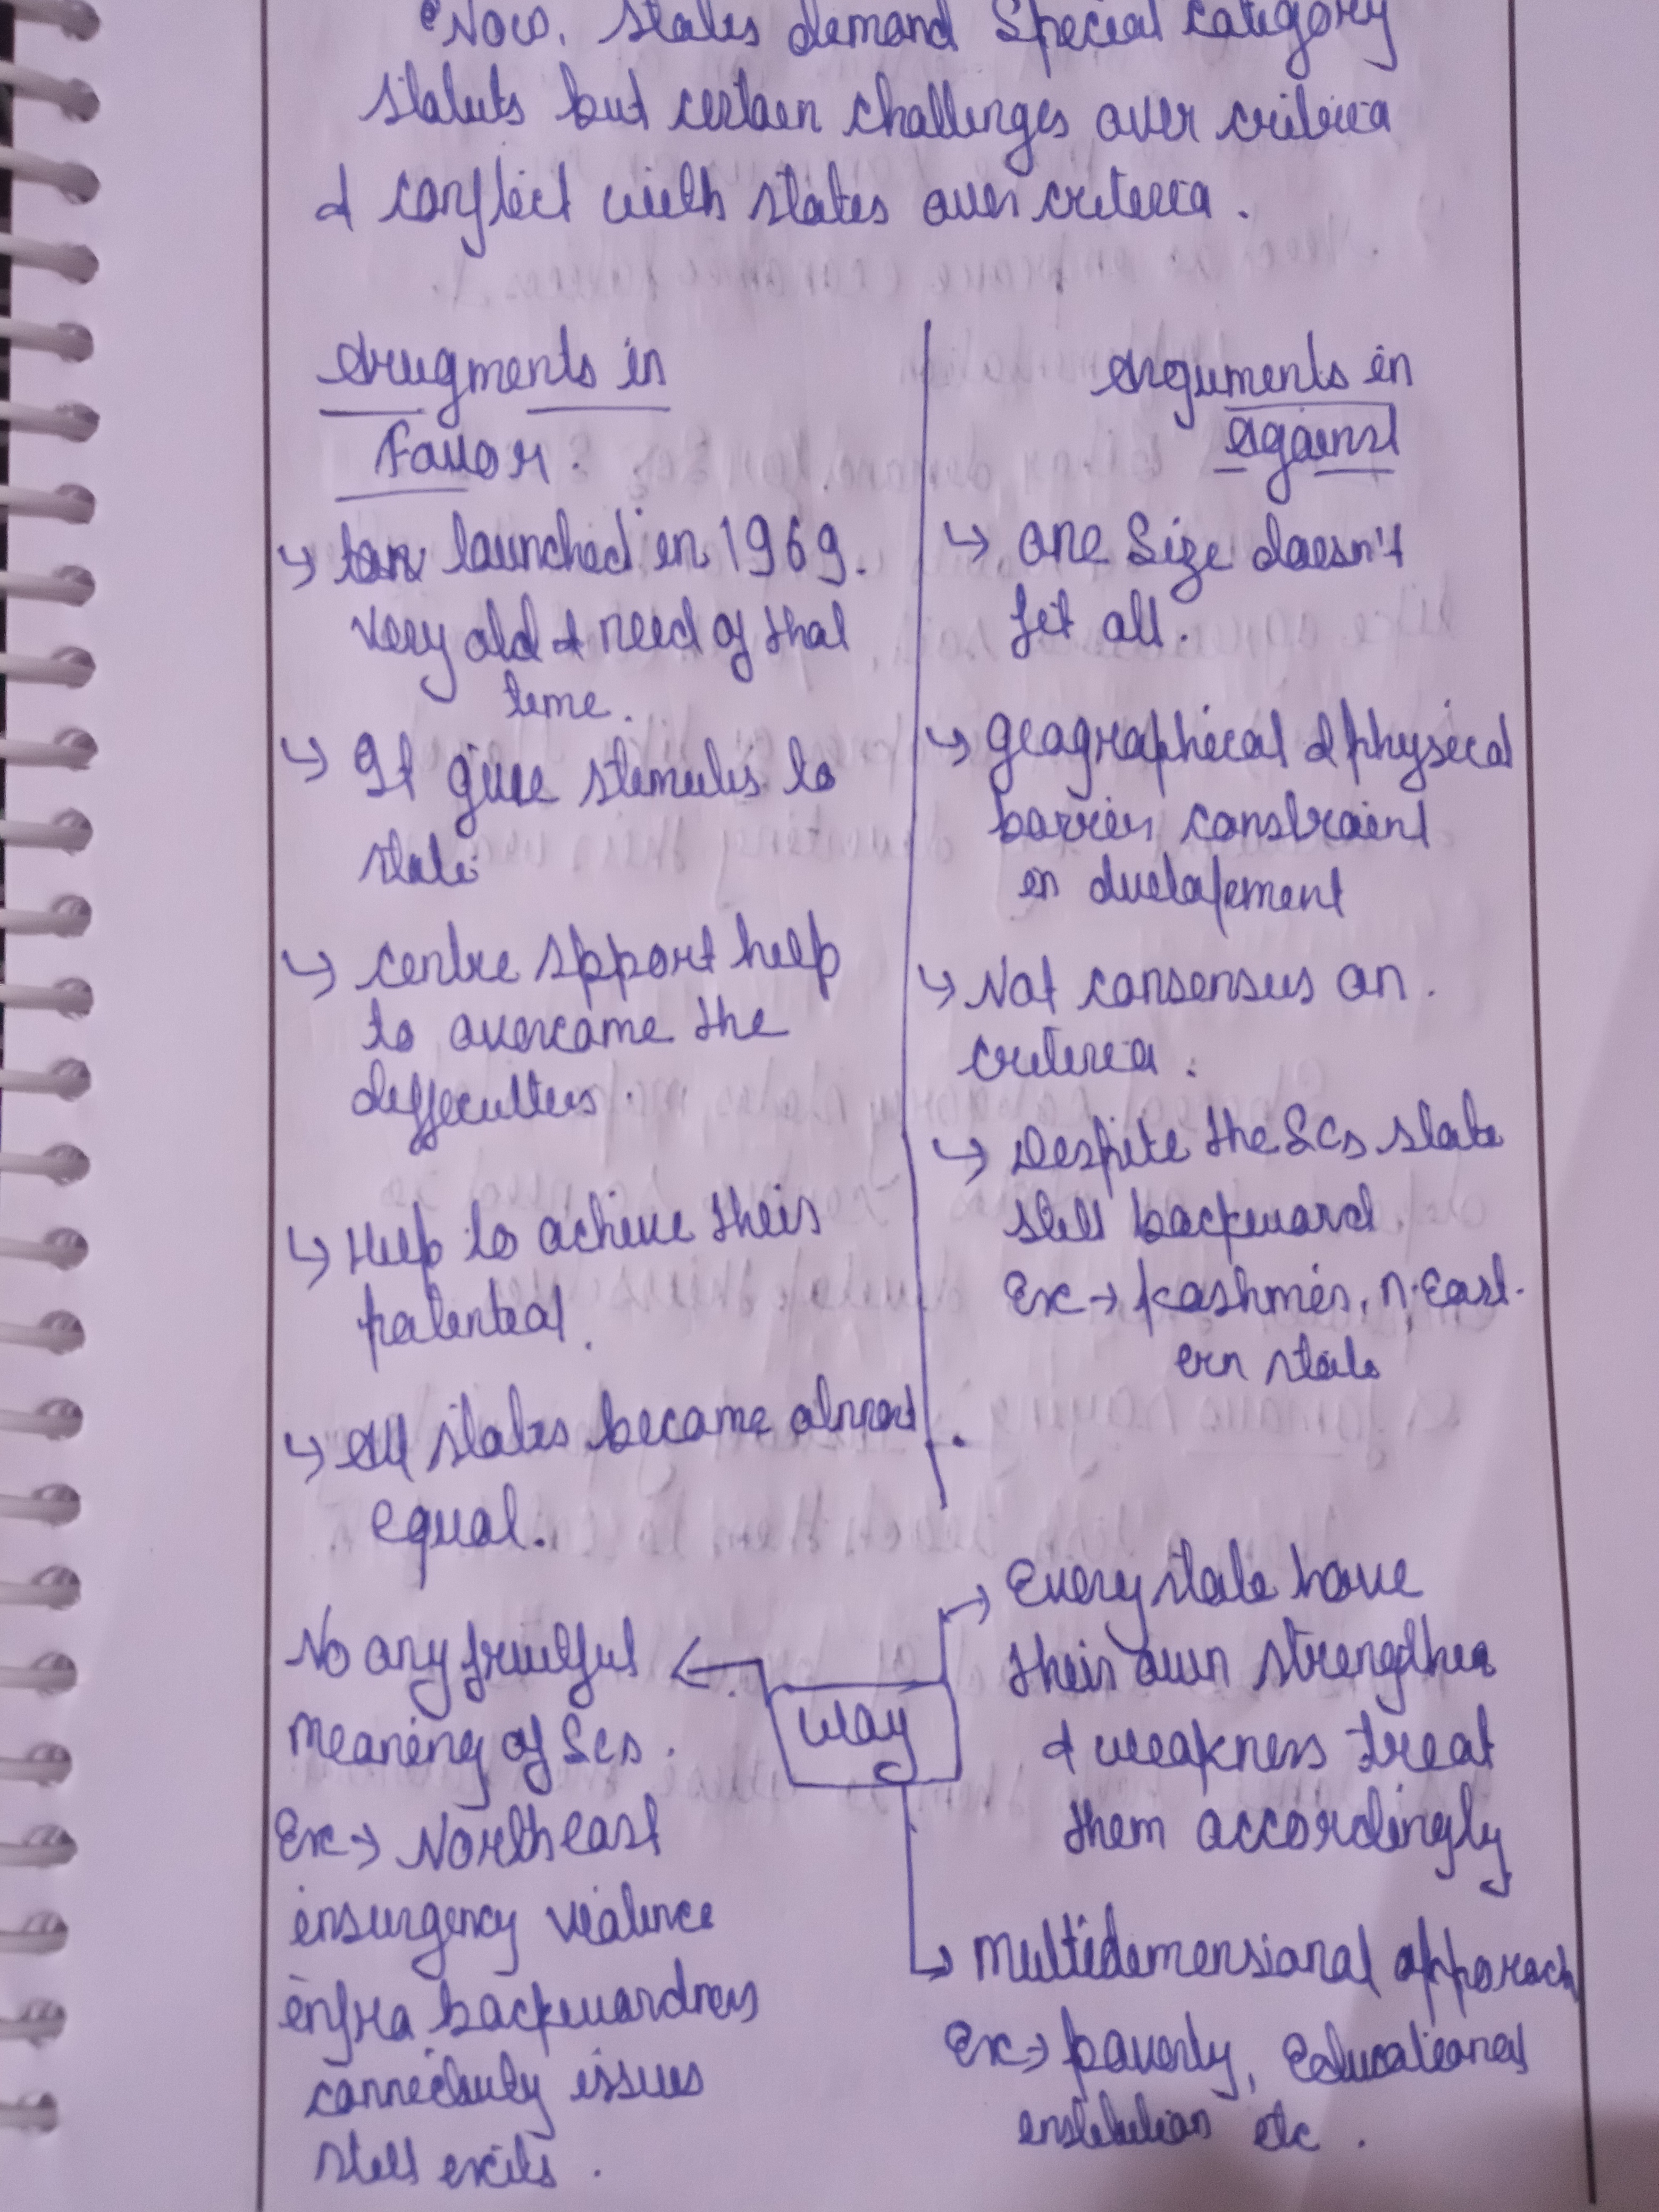 Now. states demand Special category
statuts but certain challenges over criteria
& conflict with states over criteria.
Arugments in
Favor.
↳ launched in 1969.
very old & need of that
time.
↳ It give stimulis to
state
↳ centre spport help
to overcome the
difficulties.
↳ Help to achieve their
potential.
↳ All states became almost
equal.
Arguments in
against
↳ one size doesn't
fit all.
↳ geographical & physical
barrier constraint
in duelopement
↳ Not consensus on.
criteria.
↳ Despite the SCs state
still backward
Ex → Kashmir, N. East-
ern state
No any fruitful
meaning of Scs.
Ex → North east
insurgency violence
infra backwardness
connectivity issues
still exits.
way
Every state have
their own strengthes
& weakness treat
them accordingly
↳ Multidimensional apporach
Ex → poverty, Educational
institution etc.